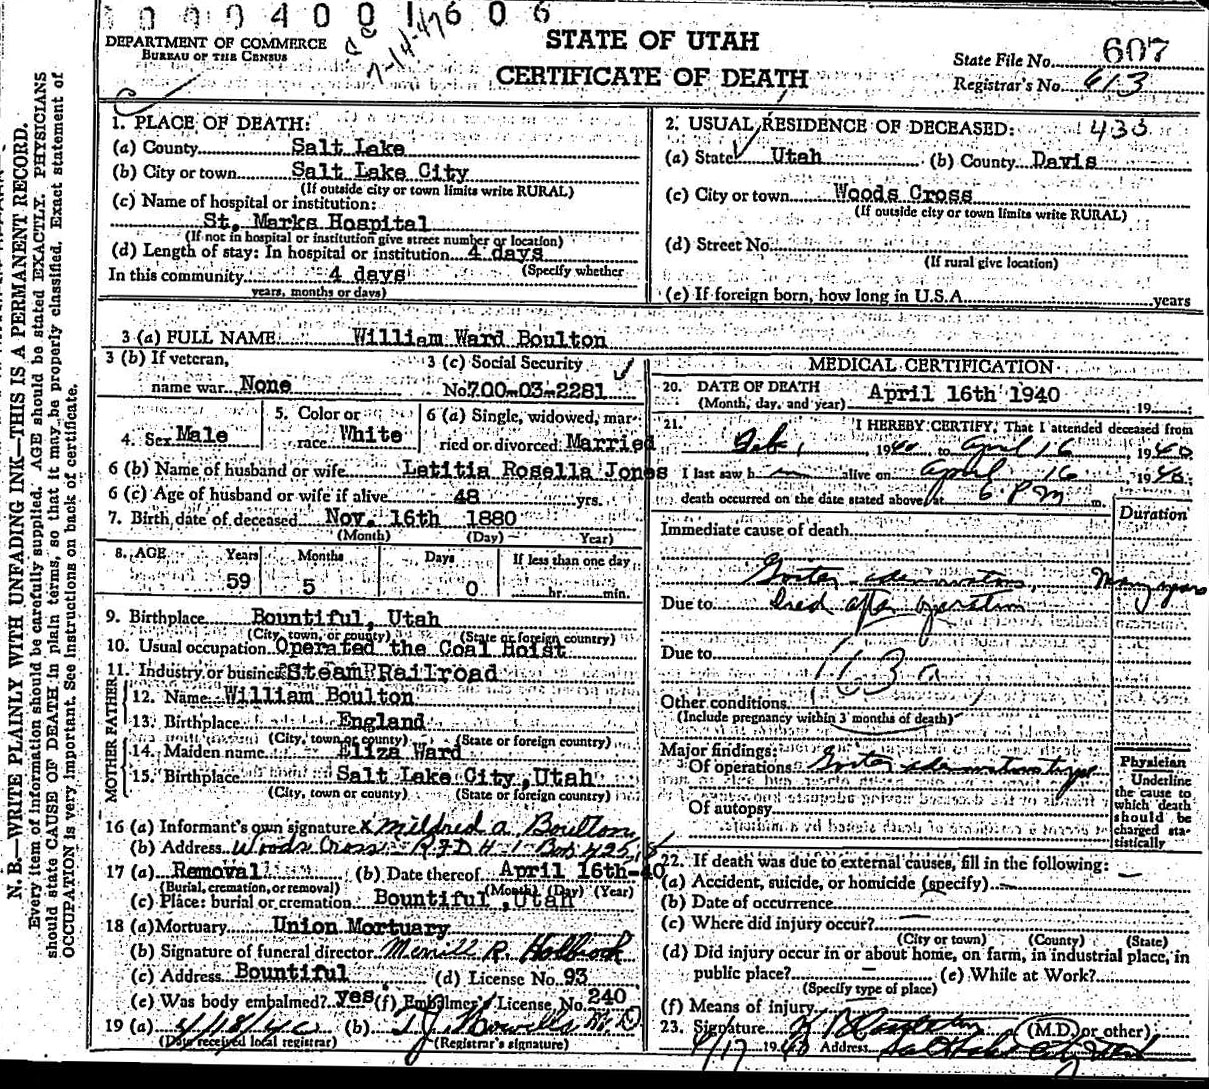 0 0 0 4 0 0 1 6 0 6
7-14-47
DEPARTMENT OF COMMERCE
BUREAU OF THE CENSUS
STATE OF UTAH
CERTIFICATE OF DEATH
State File No. 607
Registrar's No. 613
N. B.—WRITE PLAINLY WITH UNFADING INK—THIS IS A PERMANENT RECORD.
Every item of information should be carefully supplied. AGE should be stated EXACTLY. PHYSICIANS
should state CAUSE OF DEATH in plain terms, so that it may be properly classified. Exact statement of
OCCUPATION is very important. See instructions on back of certificate.
1. PLACE OF DEATH:
(a) County Salt Lake
(b) City or town Salt Lake City
(If outside city or town limits write RURAL)
(c) Name of hospital or institution:
St. Marks Hospital
(If not in hospital or institution give street number or location)
(d) Length of stay: In hospital or institution 4 days
(Specify whether
In this community 4 days
years, months or days)
2. USUAL RESIDENCE OF DECEASED: 433
(a) State Utah (b) County Davis
(c) City or town Woods Cross
(If outside city or town limits write RURAL)
(d) Street No.
(If rural give location)
(e) If foreign born, how long in U.S.A. years
3 (a) FULL NAME William Ward Boulton
3 (b) If veteran, 3 (c) Social Security
name war None No. 700-03-2281
4. Sex Male 5. Color or race White 6 (a) Single, widowed, married or divorced Married
6 (b) Name of husband or wife Letitia Rosella Jones
6 (c) Age of husband or wife if alive 48 yrs.
7. Birth date of deceased Nov. 16th 1880
(Month) (Day) Year)
8. AGE Years Months Days If less than one day
59 5 0 hr. min.
9. Birthplace Bountiful, Utah
(City, town, or county) (State or foreign country)
10. Usual occupation Operated the Coal Hoist
11. Industry or business Steam Railroad
FATHER
12. Name William Boulton
13. Birthplace England
(City, town or county) (State or foreign country)
MOTHER
14. Maiden name Eliza Ward
15. Birthplace Salt Lake City, Utah
(City, town or county) (State or foreign country)
16 (a) Informant's own signature x Mildred A. Boulton
(b) Address Woods Cross - RFD # 1 Box 425
17 (a) Removal (b) Date thereof April 16th-40
(Burial, cremation, or removal) (Month) (Day) (Year)
(c) Place: burial or cremation Bountiful, Utah
18 (a) Mortuary Union Mortuary
(b) Signature of funeral director Merrill R. Holbrook
(c) Address Bountiful (d) License No. 93
(e) Was body embalmed? yes (f) Embalmer's License No. 240
19 (a) 4/18/40 (b) T. J. Howells M. D.
(Date received local registrar) (Registrar's signature)
MEDICAL CERTIFICATION
20. DATE OF DEATH April 16th 1940
(Month, day, and year) 19
21. I HEREBY CERTIFY, That I attended deceased from
Feb 1 1940 to April 16 1940
I last saw h im alive on April 16 1940;
death occurred on the date stated above at 6 P.M m.
Duration
Immediate cause of death
Goiter adenomatous, Many years
Due to Died after operation
Due to
63 a
Other conditions
(Include pregnancy within 3 months of death)
Major findings:
Of operations Goiter adenomatous type
Of autopsy
Physician
Underline
the cause to
which death
should be
charged sta-
tistically
22. If death was due to external causes, fill in the following:
(a) Accident, suicide, or homicide (specify)
(b) Date of occurrence
(c) Where did injury occur?
(City or town) (County) (State)
(d) Did injury occur in or about home, on farm, in industrial place, in
public place? (e) While at Work?
(Specify type of place)
(f) Means of injury
23. Signature (M.D. or other)
4/17 1940 Address Salt Lake City Utah